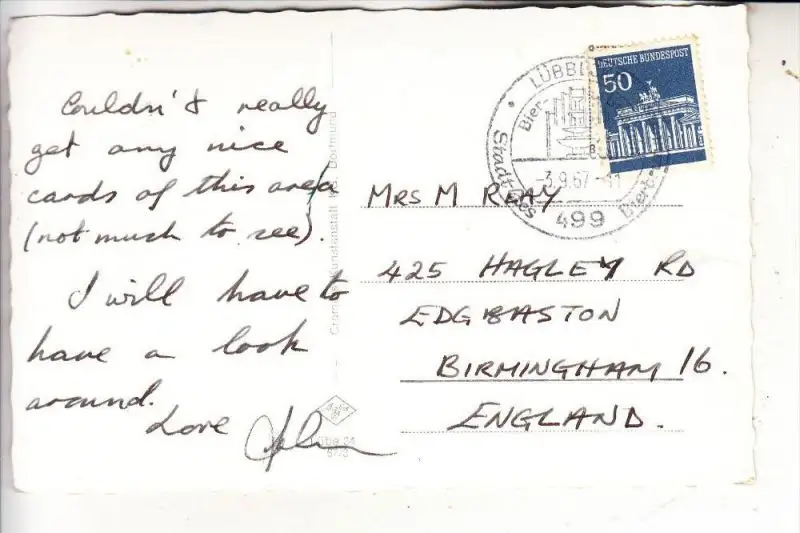 Couldn't really
get any nice
cards of this area
(not much to see).
I will have to
have a look
around.
Love John
Cramers Kunstanstalt KG. Dortmund
Lübe 24
DEUTSCHE BUNDESPOST
50
LÜBB
Bier
Stadt des
-3.9.67-
499
MRS M REAY
425 HAGLEY RD
EDGBASTON
BIRMINGHAM 16.
ENGLAND.